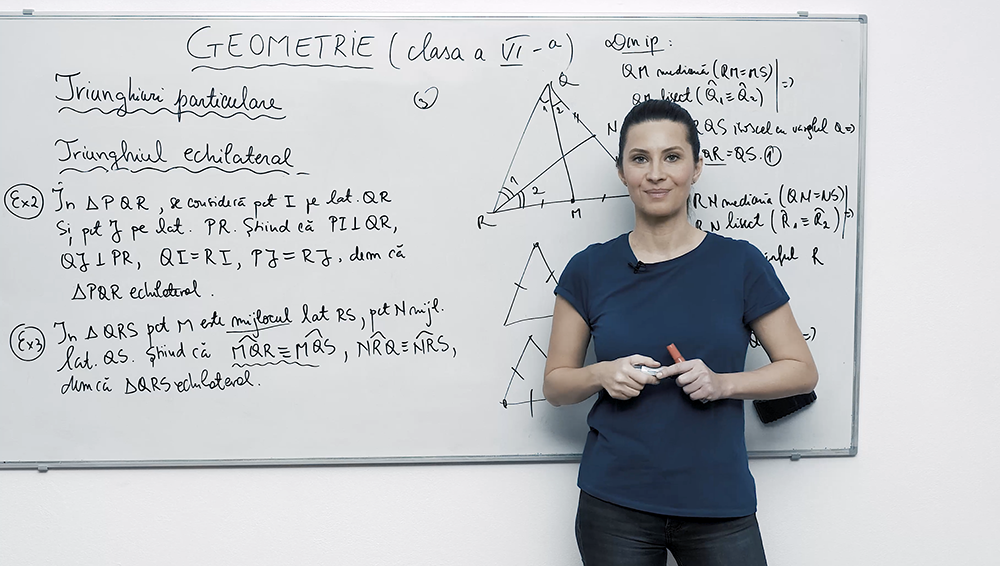 GEOMETRIE (clasa a VI-a)
Triunghiuri particulare
Triunghiul echilateral
Ex2 În △PQR, se consideră pct I pe lat. QR
Și pct J pe lat. PR. Știind că PI⊥QR,
QJ⊥PR, QI=RI, PJ=RJ, dem că
△PQR echilateral.
Ex3 În △QRS pct M este mijlocul lat RS, pct N mijl.
lat. QS. Știind că MQR≡MQS, NRQ≡NRS,
dem că △QRS echilateral.
3
Q
1 2
N
1
2
R
M
Din ip:
QM mediană (RM=MS) |
QM bisect (Q̂1≡Q̂2) | =>
RQS isoscel cu vârful Q =>
QR=QS. (1)
RN mediană (QN=NS) |
RN bisect (R̂1≡R̂2) | =>
vârful R